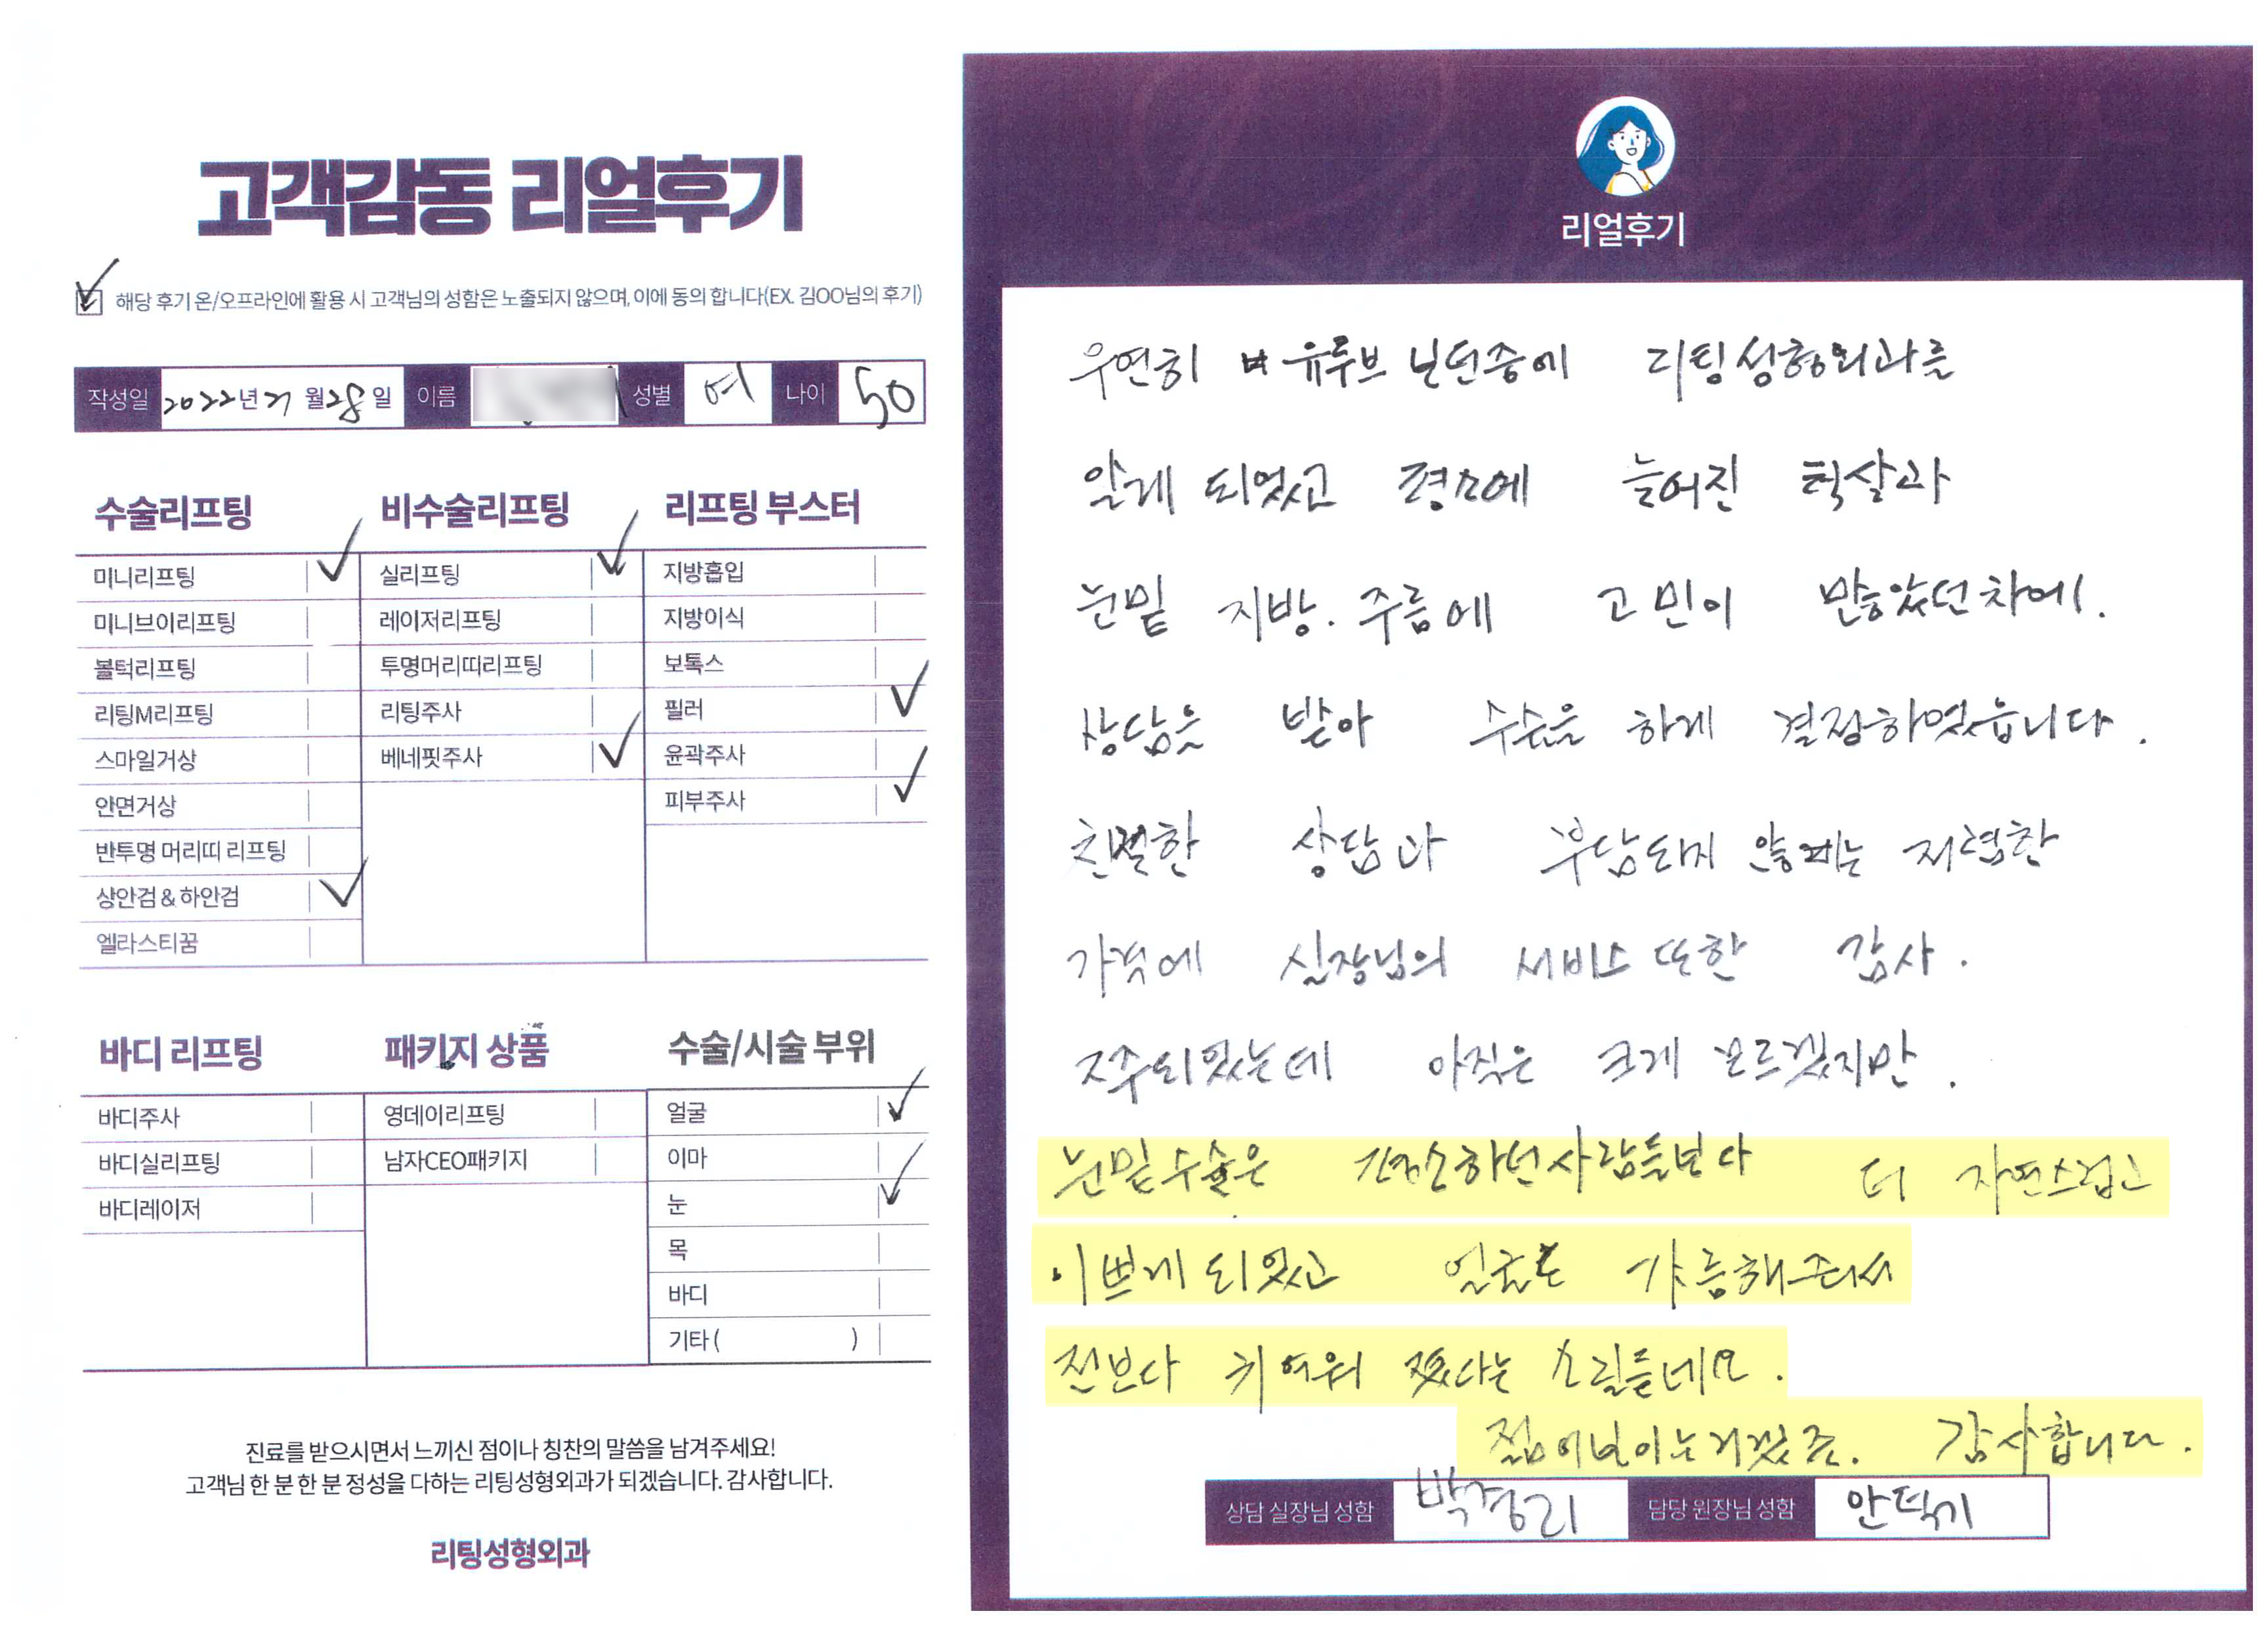 고객감동 리얼후기
해당 후기 온/오프라인에 활용 시 고객님의 성함은 노출되지 않으며, 이에 동의 합니다(EX. 김OO님의 후기)
작성일 2022년 월 28일 이름 성별 여 나이 50
수술리프팅
미니리프팅
미니브이리프팅
볼턱리프팅
리팅M리프팅
스마일거상
안면거상
반투명 머리띠 리프팅
상안검 & 하안검
엘라스티꿈
비수술리프팅
실리프팅
레이저리프팅
투명머리띠리프팅
리팅주사
베네핏주사
리프팅 부스터
지방흡입
지방이식
보톡스
필러
윤곽주사
피부주사
바디 리프팅
바디주사
바디실리프팅
바디레이저
패키지 상품
영데이리프팅
남자CEO패키지
수술/시술 부위
얼굴
이마
눈
목
바디
기타 ( )
진료를 받으시면서 느끼신 점이나 칭찬의 말씀을 남겨주세요!
고객님 한 분 한 분 정성을 다하는 리팅성형외과가 되겠습니다. 감사합니다.
리팅성형외과
리얼후기
우연히 유튜브 보던중에 리팅성형외과를
알게 되었고 평소에 늘어진 턱살과
눈밑 지방. 주름에 고민이 많았던차에.
상담을 받아 수술을 하게 결정하였습니다.
친절한 상담과 부담되지 않는 저렴한
가격에 실장님의 서비스 또한 감사.
2주되었는데 아직은 크게 모르겠지만.
눈밑수술은 걱정하던사람들보다 더 자연스럽고
이쁘게 되었고 얼굴도 갸름해주셔서
전보다 귀여워 졌다는 소릴듣네요.
젊어보이는거겠죠. 감사합니다.
상담 실장님 성함 박경리 담당 원장님 성함 안덕기